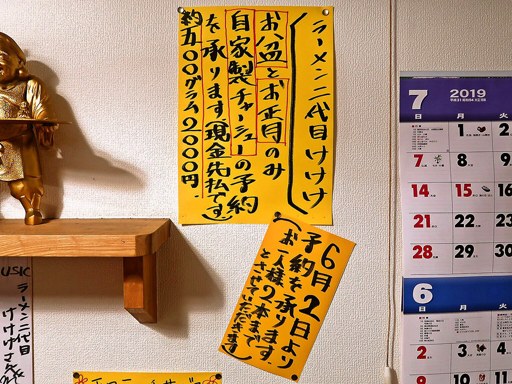 ラーメン二代目けけけ
お盆とお正月のみ
自家製チャーシューの予約
を承ります(現金先払です)
約五〇〇グラム2000円
6月2日より
予約を承ります。
お一人様2本まで
とさせていただきます
ラーメン二代目
7
2019
日
月
火
1
2
7
8
9
14
15
16
21
22
23
28
29
30
6
日
月
火
2
3
4
9
10
11